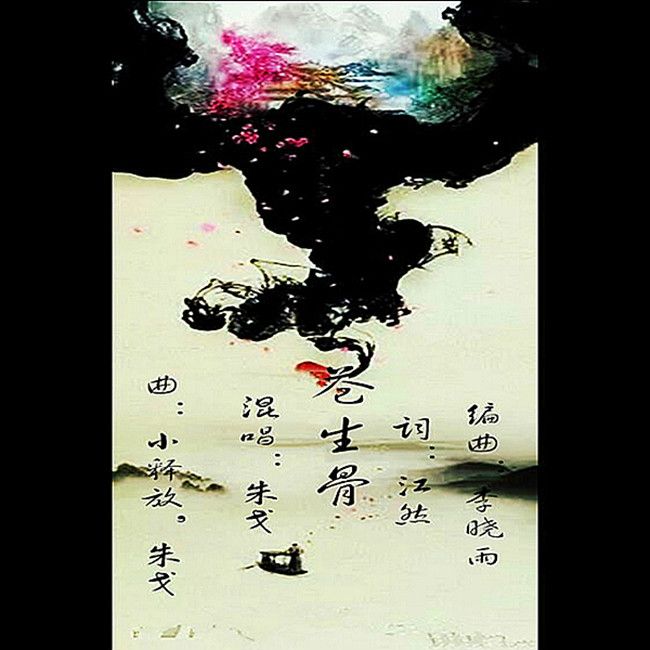 苍生骨
编曲：李晓雨
词：江然
混唱：朱戈
曲：小释放，朱戈